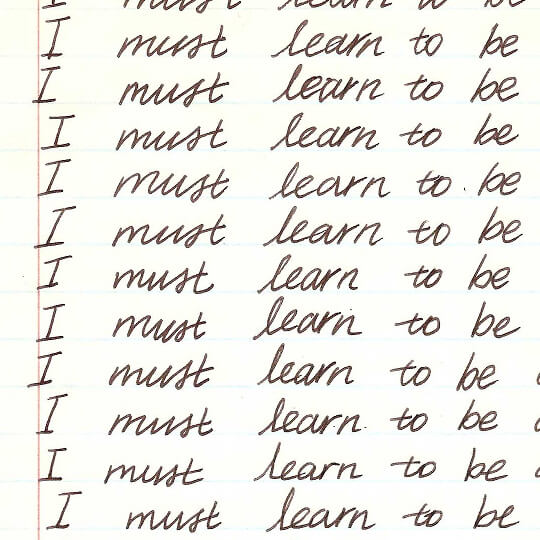 I must learn to be
I must learn to be
I must learn to be
I must learn to be
I must learn to be
I must learn to be
I must learn to be
I must learn to be
I must learn to be
I must learn to be
I must learn to be
I must learn to be